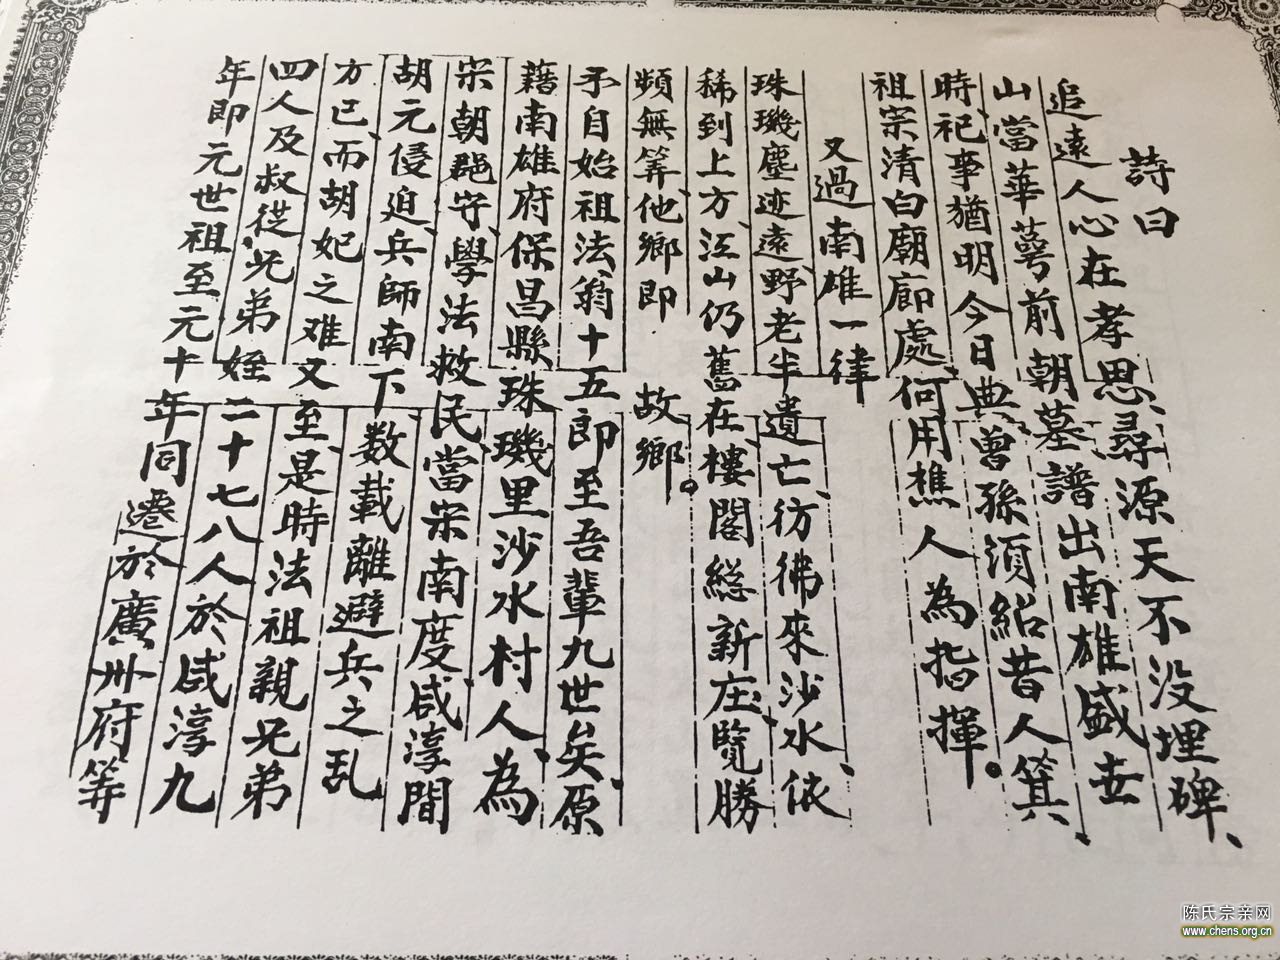 詩曰
追遠人心在孝思、尋源天不没埋碑、
山當華萼前朝墓、譜出南雄盛世
時、祀事猶明今日典、曾孫須紹昔人箕、
祖宗清白廟廊處、何用樵人為指揮。
又過南雄一律
珠璣塵迹遠、野老半遺亡、彷彿來沙水、依
稀到上方、江山仍舊在、樓閣總新庄、覽勝
頻無筭、他鄉即故鄉。
予自始祖法翁十五郎至吾輩九世矣、原
藉南雄府保昌縣珠璣里沙水村人、為
宋朝守、學法救民、當宋南度咸淳間
胡元侵迫、兵師南下、数載離避兵之乱
方已、而胡妃之难又至、是時法祖親兄弟
四人及叔從兄弟姪二十七八人於咸淳九
年即元世祖至元十年同遷於廣州府等
陈氏宗亲网
www.chens.org.cn